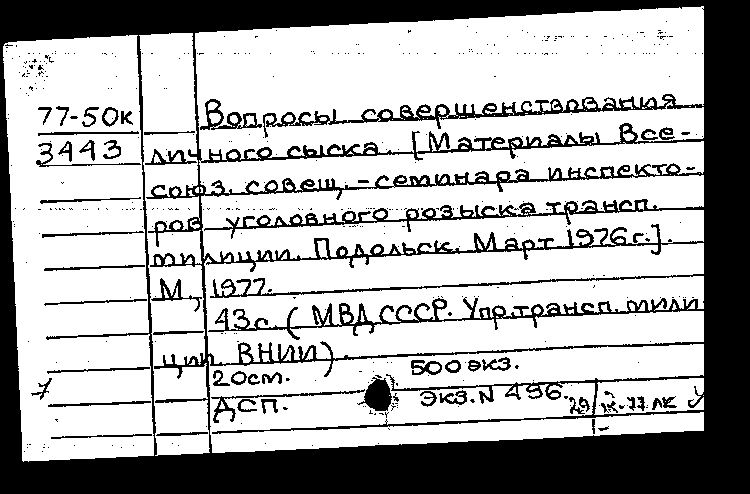 77-50к Вопросы совершенствования
3443 личного сыска. [Материалы Все-
союз. совещ.-семинара инспекто-
ров уголовного розыска трансп.
милиции. Подольск. Март 1976 г.].
М., 1977.
43 с. (МВД СССР. Упр. трансп. мили
ции. ВНИИ).
20 см. 500 экз.
ДСП. Экз. N 496. 29/IX-77 ЛК